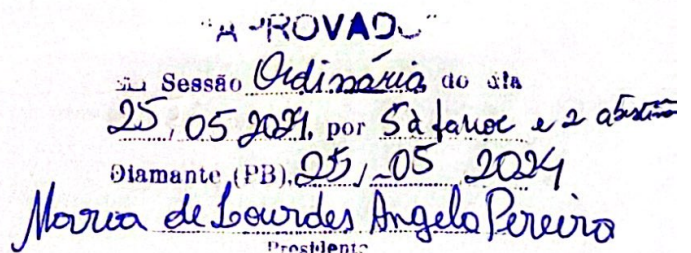 "APROVADO"
Sessão Ordinária do dia
25, 05 2024, por 5 à favor e 2 abstenção
Diamante (PB), 25, 05 2024
Maria de Lourdes Angelo Pereira
Presidente